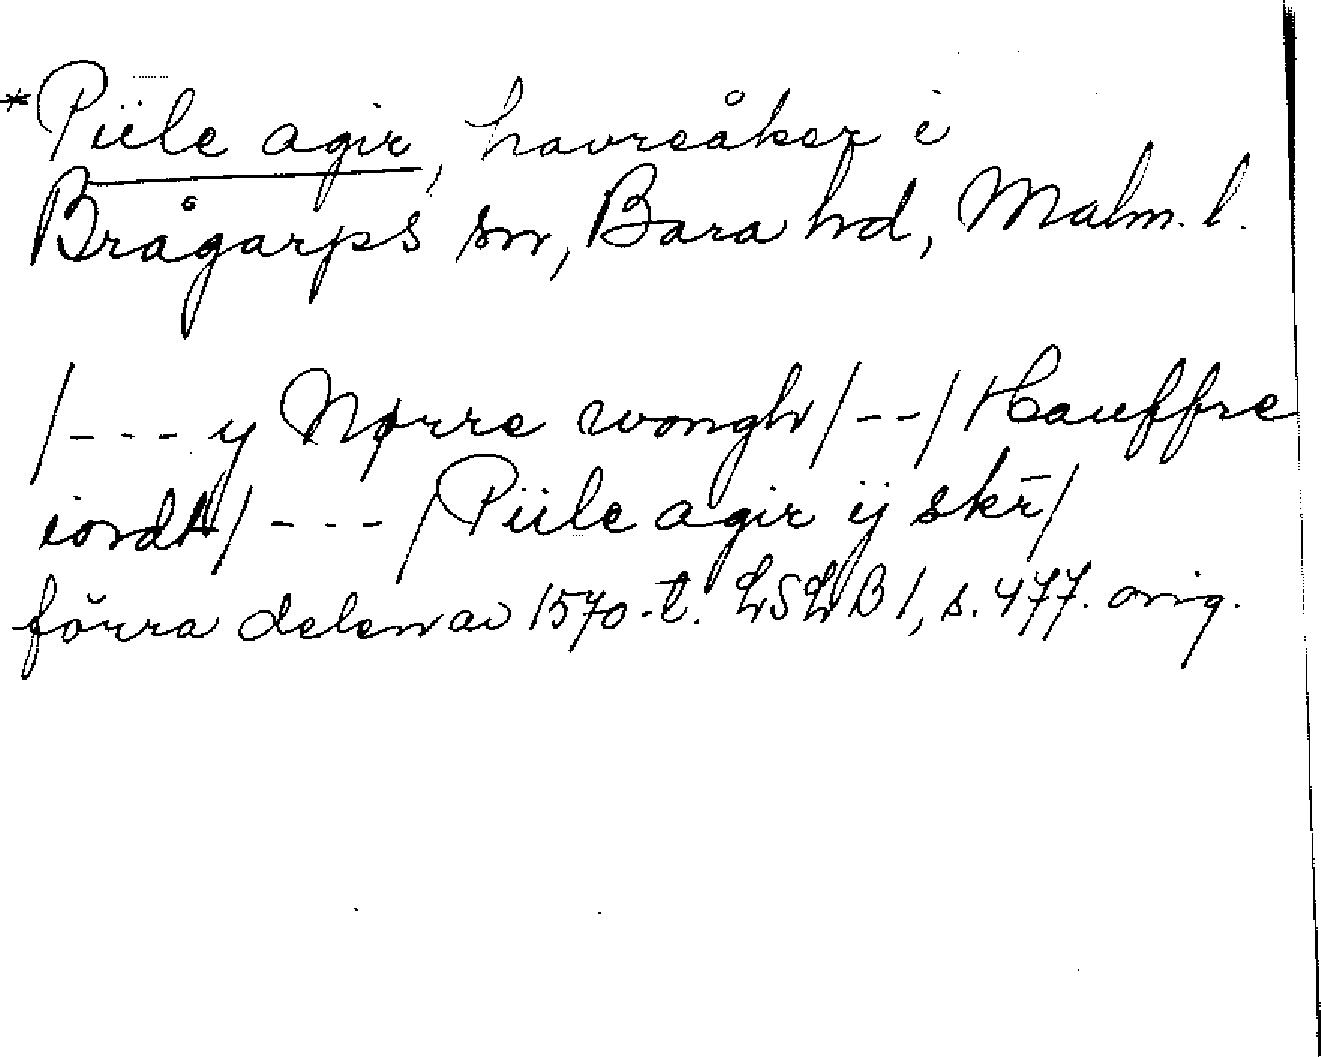 *Piile agir, havreåker i
Brågarps sn, Bara hd, Malm. l.
/--- y Nørre wongh/--/Hauffre
iordt/---/Piile agir ij skr̄/
förra delen av 1570-t. LSLB 1, s. 477. orig.